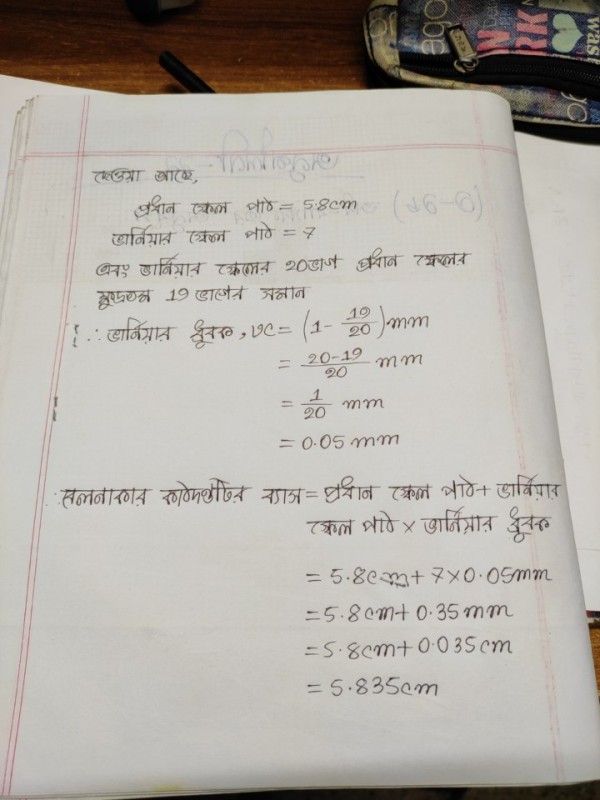 দেওয়া আছে,
প্রধান স্কেল পাঠ = 5.8cm
ভার্নিয়ার স্কেল পাঠ = 7
এবং ভার্নিয়ার স্কেলের 20ভাগ প্রধান স্কেলের
ক্ষুদ্রতম 19 ভাগের সমান
∴ ভার্নিয়ার ধ্রুবক, VC = (1 - 19/20) mm
= 20-19/20 mm
= 1/20 mm
= 0.05 mm
সলনাকার কাঠদণ্ডটির ব্যাস = প্রধান স্কেল পাঠ + ভার্নিয়ার
স্কেল পাঠ × ভার্নিয়ার ধ্রুবক
= 5.8cm + 7×0.05mm
= 5.8cm + 0.35 mm
= 5.8cm + 0.035 cm
= 5.835cm